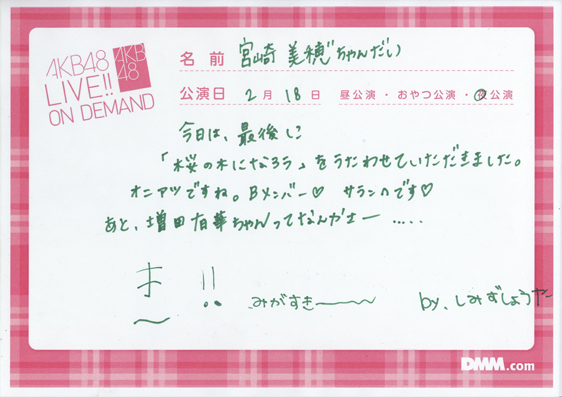 AKB48
LIVE!!
ON DEMAND
AKB
48
名 前 宮崎 美穂ちゃんだい
公演日 2 月 18 日 昼公演・おやつ公演・夜公演
今日は、最後に
「桜の木になろう」をうたわせていただきました。
オニアツですね。Bメンバー♡ サランヘです♡
あと、増田有華ちゃんってなんかさー …‥
すー !!
みがすき〜〜
by、しみずしょうたー
DMM.com